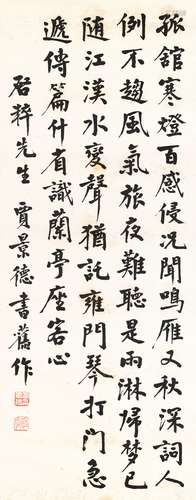 孤館寒燈百感侵況聞鳴雁又秋深詞人
例不趨風氣旅夜難聽是雨淋歸梦已
随江漢水變聲猶託雍門琴打门急
遞傳篇什有識蘭亭座客心
啓粹先生 賈景德書舊作